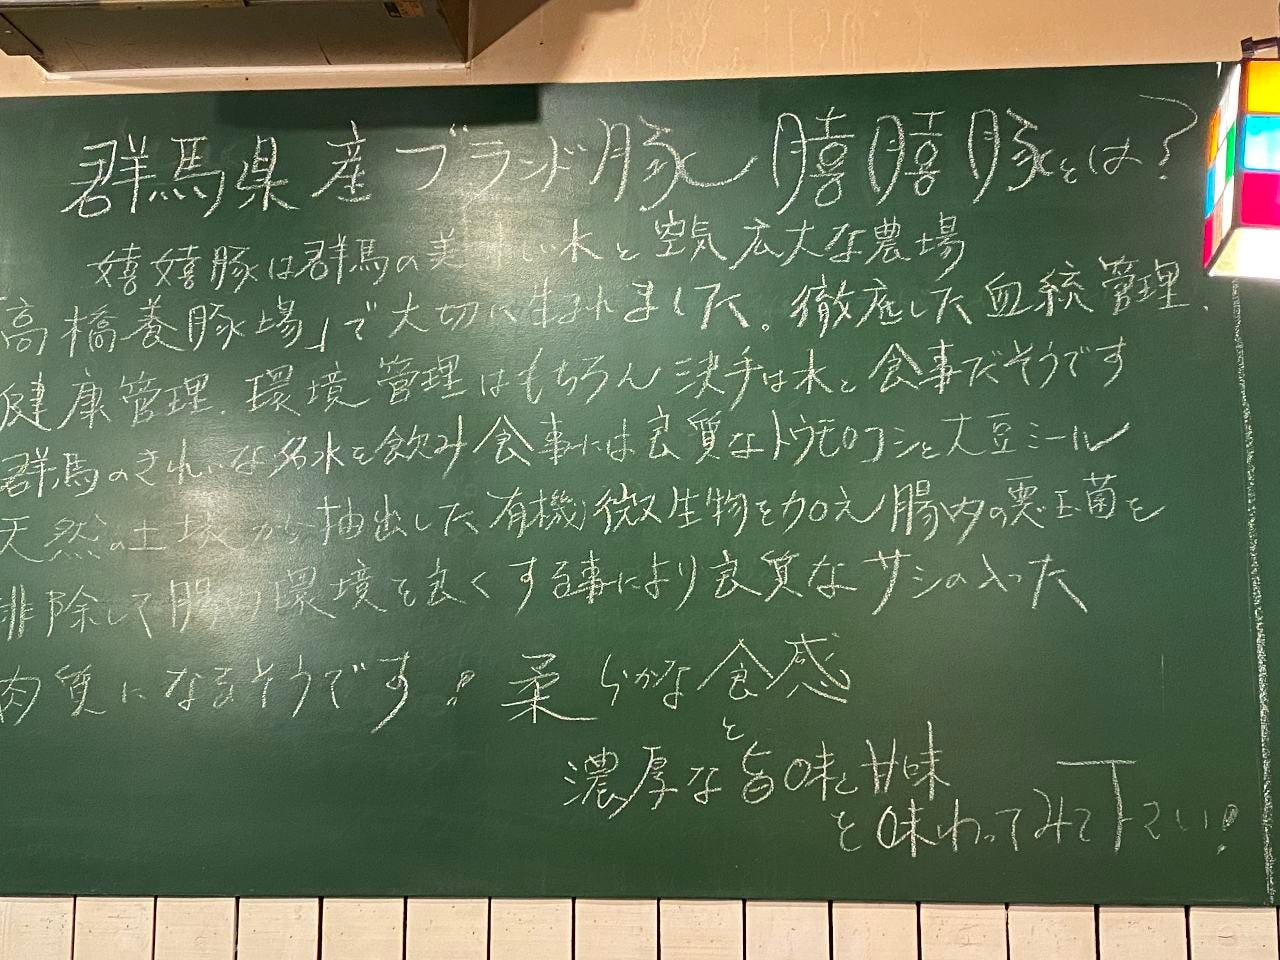 群馬県産ブランド豚 嬉嬉豚とは?
嬉嬉豚は群馬の美味しい水と空気広大な農場
「高橋養豚場」で大切に生まれました。徹底した血統管理、
健康管理、環境管理はもちろん決手は水と食事だそうです
群馬のきれいな名水を飲み食事には良質なトウモロコシと大豆ミール
天然の土壌から抽出した有機微生物を加え腸内の悪玉菌を
排除して腸内環境を良くする事により良質なサシの入った
肉質になるそうです!柔らかな食感
と
濃厚な旨味と甘味
を味わってみて下さい!